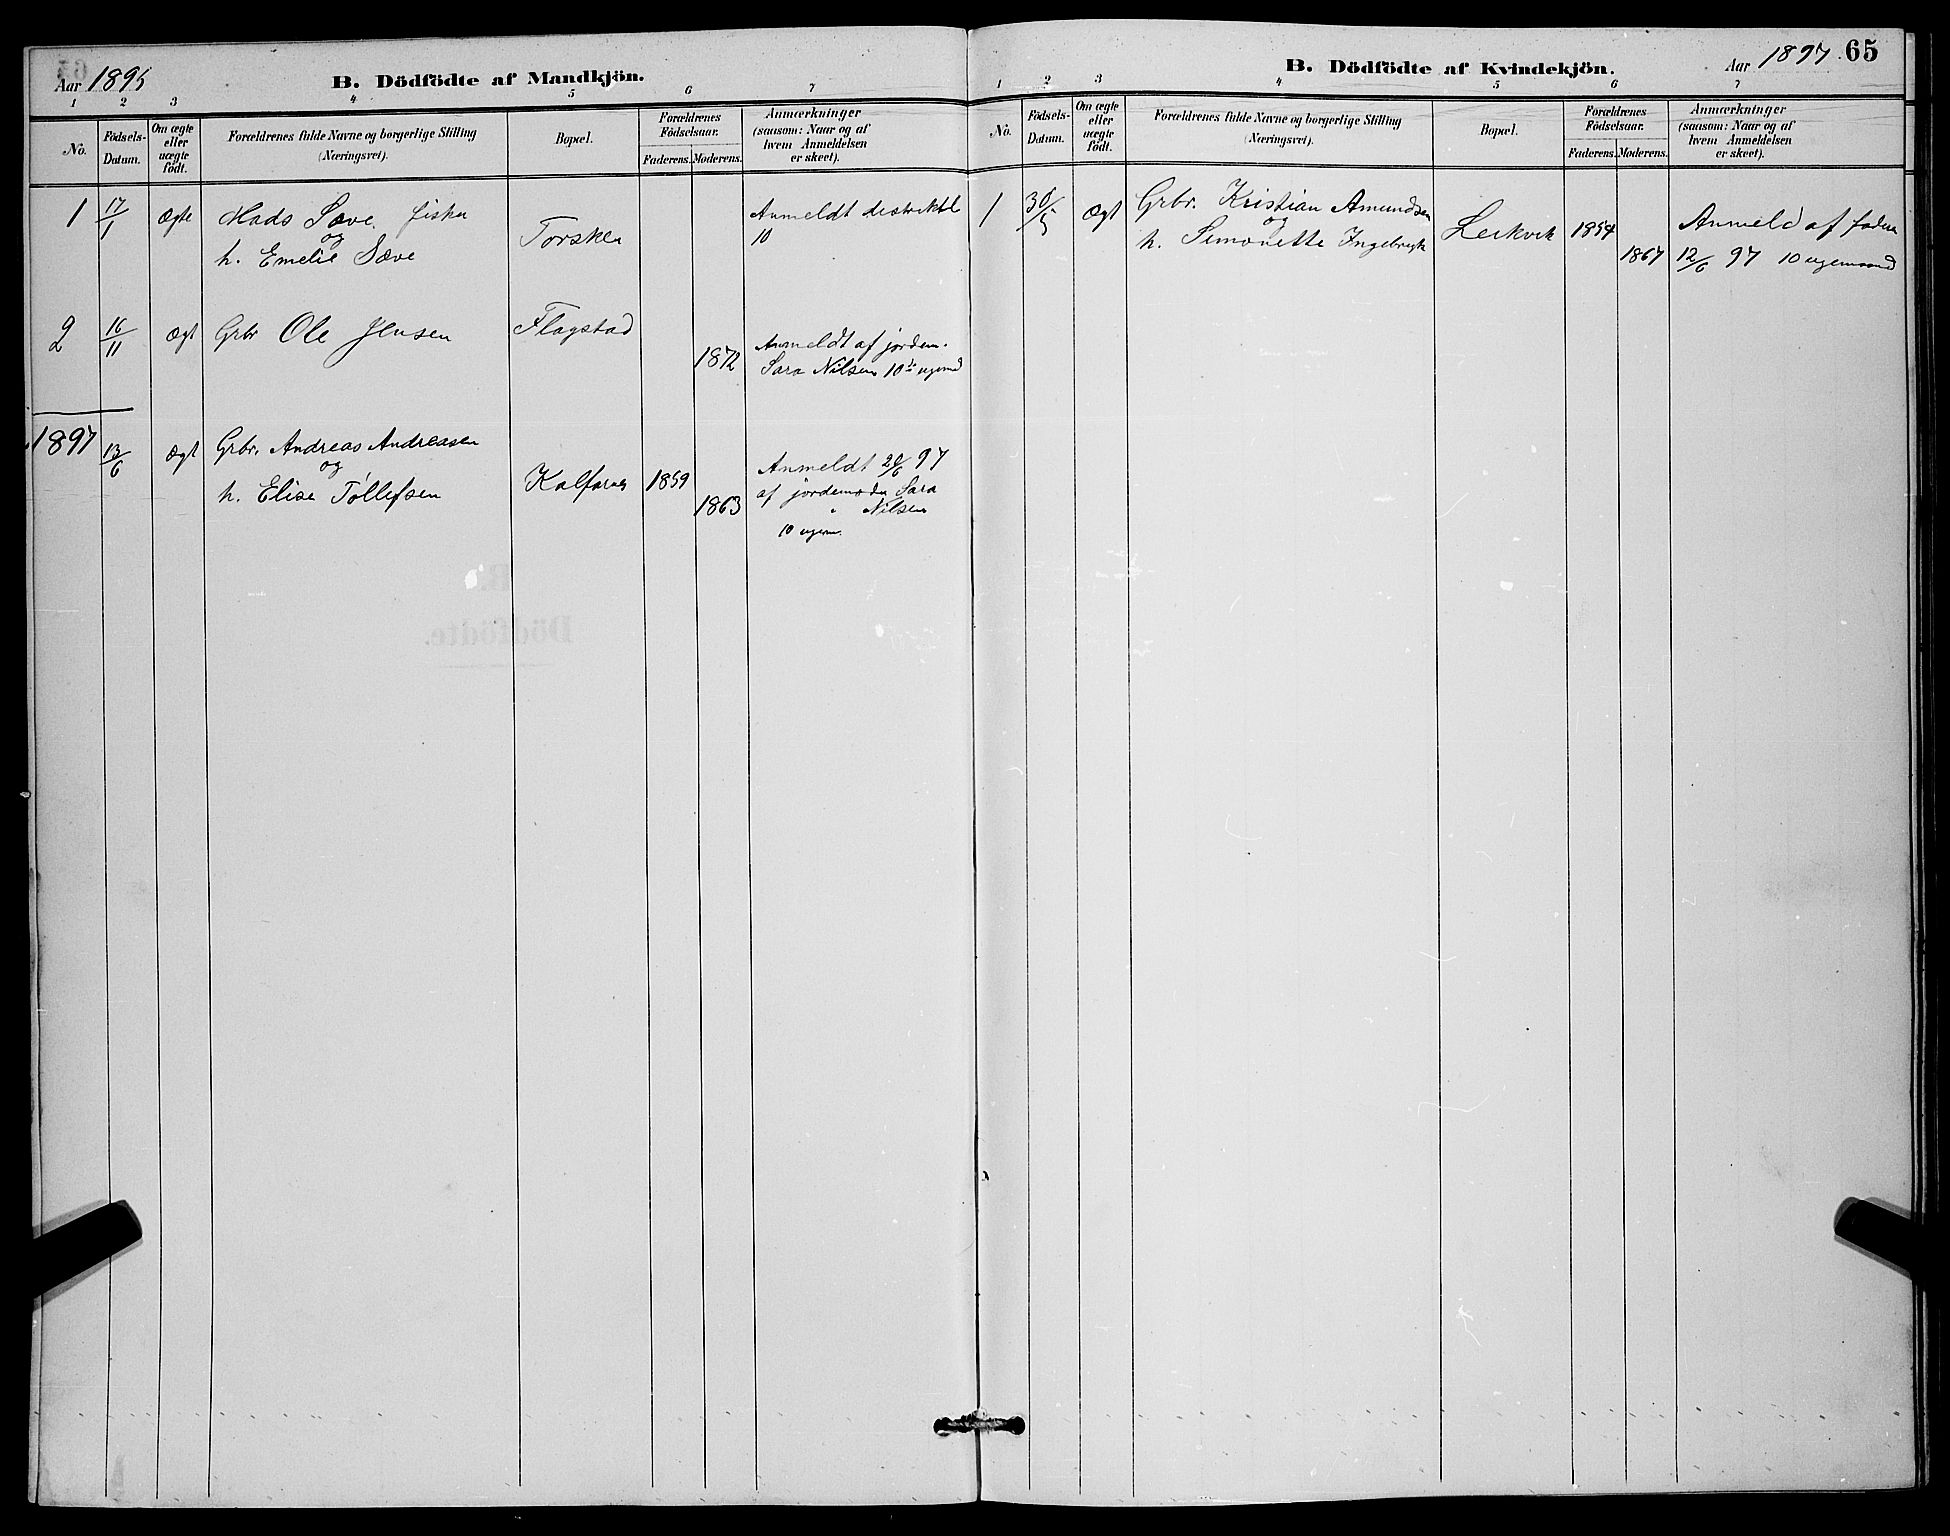 Aar 1895 B. Dödfödte af Mandkjön.
1 2 3 4 5 6 7
No. Födsels-Datum. Om ægte eller uægte födt. Forældrenes fulde Navne og borgerlige Stilling (Næringsvei). Bopæl. Forældrenes Födselsaar. Faderens. Moderens. Anmærkninger (saasom: Naar og af hvem Anmeldelsen er skeet).
1 17/1 ægte Mads Sæve fisker Anmeldt
og Torsken 10
h. Emelie Sæve
2 16/11 ægt Grbr Ole Jensen Flagstad
1872 Anmeldt af jordem.
Sara Nilsen 10
1897 13/6 ægt Grbr. Andreas Andreasen
og Kalfarnes 1859 Anmeldt 20/6 97
h. Elise Tollefsen 1863 af jordemoder Sara
Nilsen
10 ugem.
Aar 1897. 65
B. Dödfödte af Kvindekjön.
1 2 3 4 5 6 7
No. Födsels-Datum. Om ægte eller uægte födt. Forældrenes fulde Navne og borgerlige Stilling (Næringsvei). Bopæl. Forældrenes Födselsaar. Faderens. Moderens. Anmærkninger (saasom: Naar og af hvem Anmeldelsen er skeet).
1 30/5 ægt Grbr. Kristian Amundsen
og Leikvik 1854 Anmeld af faderen
h. Simonette 1867 12/6 97 10